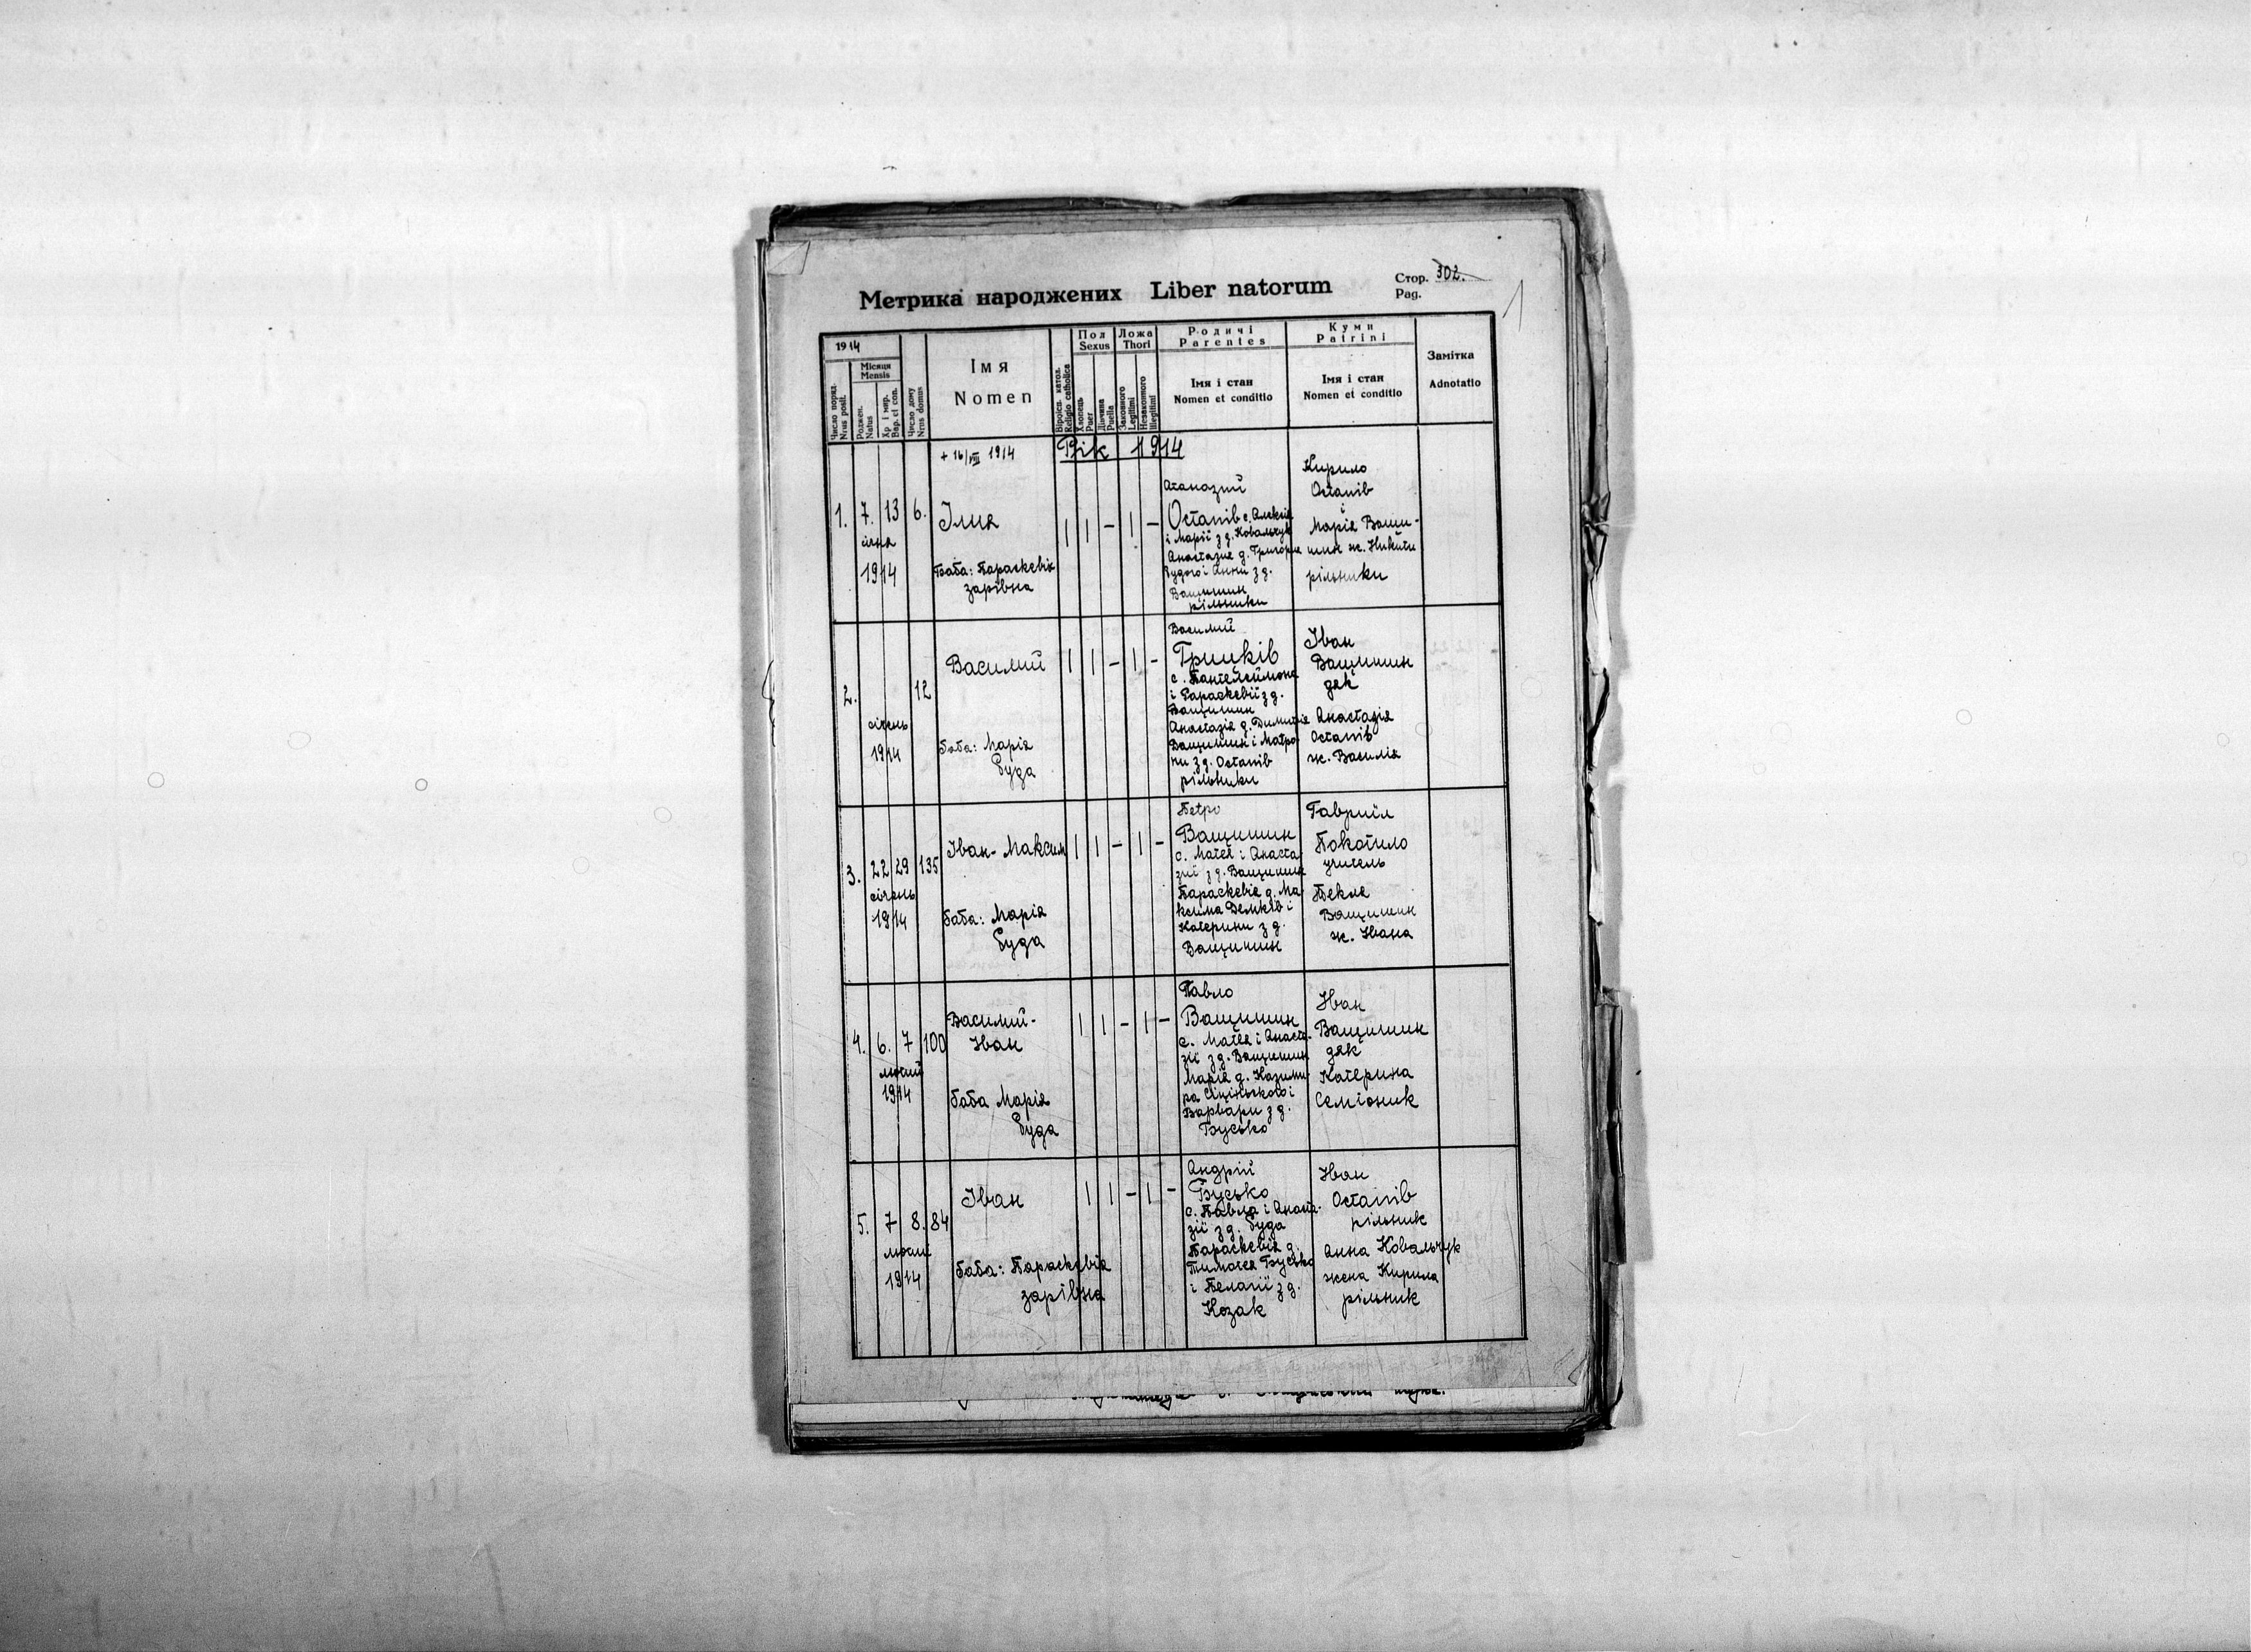 Метрика народжених Liber natorum
Стор. 302.
Pag.
1
1914
Місяця
Mensis
Число поряд.
Nrus posit.
Роджен.
Natus
Хр. і мир.
Bap. et con.
Число дому
Nrus domus
Імя
Nomen
Віроісп. катол.
Religio catholica
Пол
Sexus
Хлопець
Puer
Дівчина
Puella
Ложа
Thori
Законного
Legitimi
Незаконного
Illegitimi
Родичі
Parentes
Імя і стан
Nomen et conditio
Куми
Patrini
Імя і стан
Nomen et conditio
Замітка
Adnotatio
+ 16/VIII 1914
Рік 1914
1. 7. 13 6.
січня
1914
Ілия
Баба: Параскевія
зарівна
1 1 - 1 -
Атаназий
Остапів с. Алексія
і Марії з д. Ковальчук
Анастазия д. Григорія
Гудого і Анни з д.
Ващишин
рільники
Кирило
Остапів
і
Марія Ващи-
шин ж. Никити
рільники
2. 12
січень
1914
Василий
баба: Марія
Гуда
1 1 - 1 -
Василий
Грицків
с. Пантелеймона
і Параскевії з д.
Ващишин
Анастазія д. Димитрія
Ващишин і Матро-
ни з д. Остапів
рільники
Іван
Ващишин
дяк
Анастазія
Остапів
ж. Василія
3. 22 29 135
січень
1914
Іван-Максим
баба: Марія
Гуда
1 1 - 1 -
Петро
Ващишин
с. Матея і Анаста-
зиї з д. Ващишин
Параскевія д. Ма-
ксима Демків і
Катерини з д.
Ващишин
Гавриїл
Покотило
учитель
Текля
Ващишин
ж. Івана
4. 6. 7 100
лютий
1914
Василий-
Іван
баба Марія
Гуда
1 1 - 1 -
Павло
Ващишин
с. Матея і Анаста-
зії з д. Ващишин
Марія д. Казими-
ра Сіцінського і
Варвари з д.
Бусько
Іван
Ващишин
дяк
Катерина
Семіоник
5. 7 8. 84
лютий
1914
Іван
баба: Параскевія
зарівна
1 1 - 1 -
Андрій
Бусько
с. Павла і Анаста-
зії з д. Гуда
Параскевія д.
Тимотея Бусько
і Пелагії з д.
Козак
Іван
Остапів
рільник
Анна Ковальчук
жена Кирила
рільник